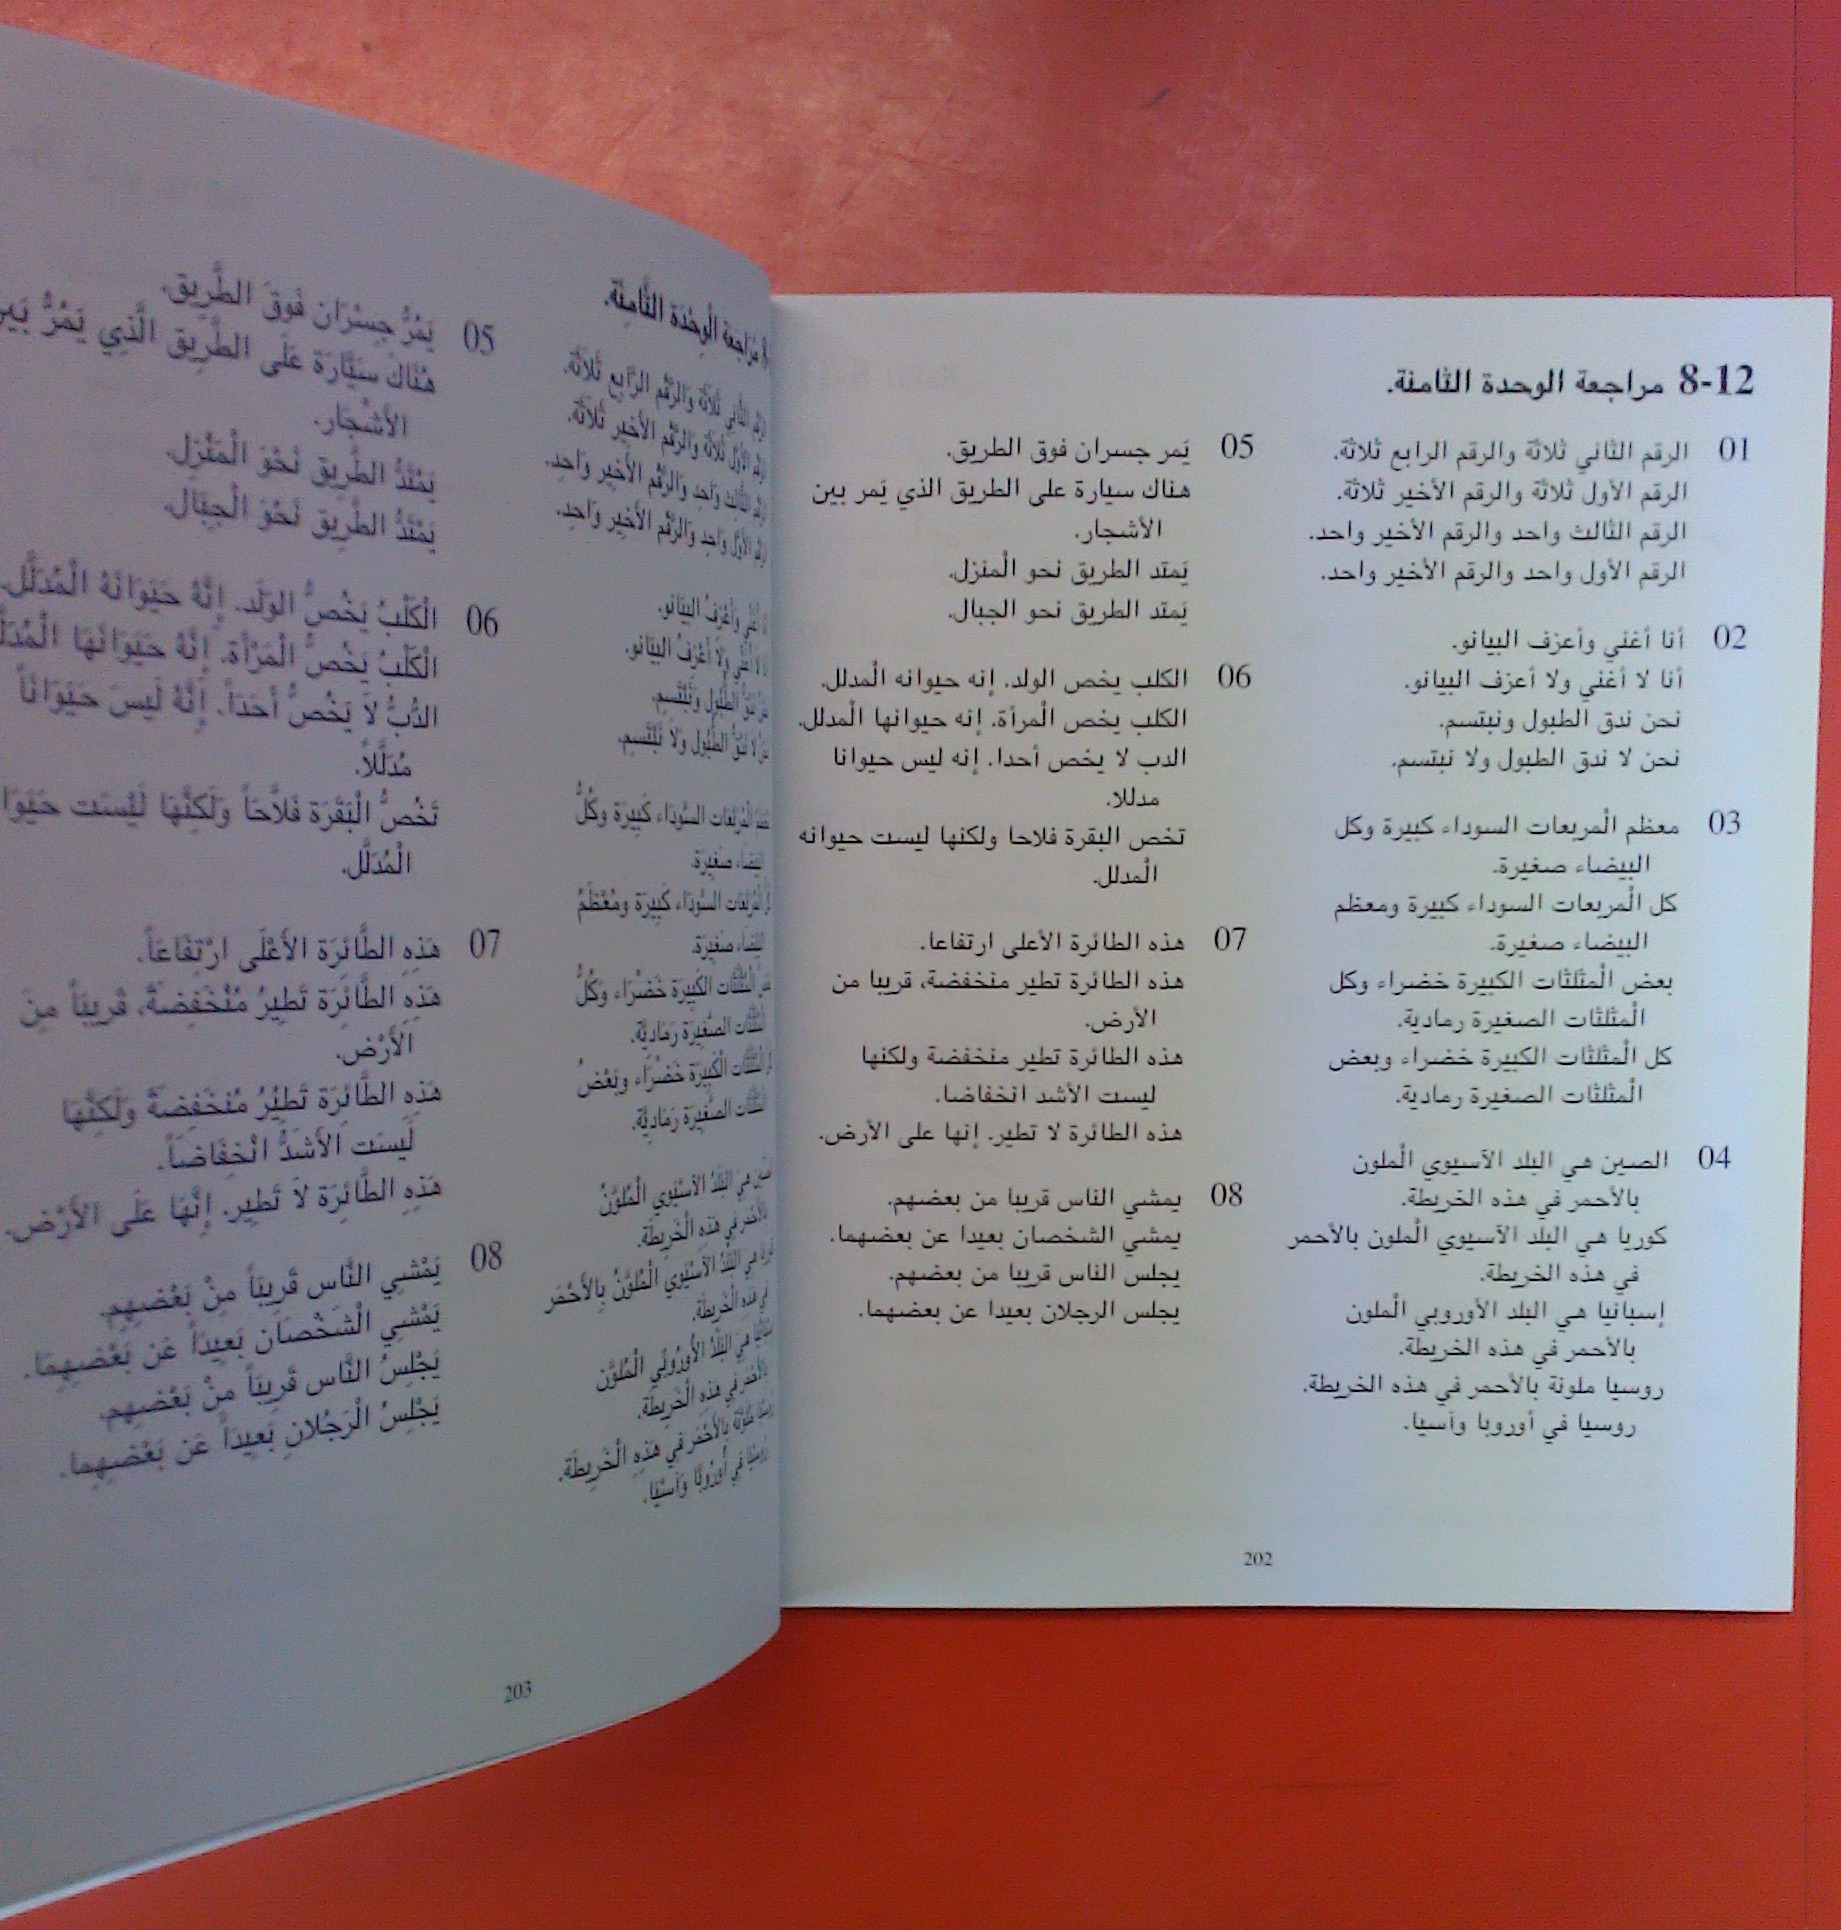 8-12 مراجعة الوحدة الثامنة.
01 الرقم الثاني ثلاثة والرقم الرابع ثلاثة.
الرقم الأول ثلاثة والرقم الأخير ثلاثة.
الرقم الثالث واحد والرقم الأخير واحد.
الرقم الأول واحد والرقم الأخير واحد.
02 أنا أغني وأعزف البيانو.
أنا لا أغني ولا أعزف البيانو.
نحن ندق الطبول ونبتسم.
نحن لا ندق الطبول ولا نبتسم.
03 معظم الْمربعات السوداء كبيرة وكل
البيضاء صغيرة.
كل الْمربعات السوداء كبيرة ومعظم
البيضاء صغيرة.
بعض الْمثلثات الكبيرة خضراء وكل
الْمثلثات الصغيرة رمادية.
كل الْمثلثات الكبيرة خضراء وبعض
الْمثلثات الصغيرة رمادية.
04 الصين هي البلد الآسيوي الْملون
بالأحمر في هذه الخريطة.
كوريا هي البلد الآسيوي الْملون بالأحمر
في هذه الخريطة.
إسبانيا هي البلد الأوروبي الْملون
بالأحمر في هذه الخريطة.
روسيا ملونة بالأحمر في هذه الخريطة.
روسيا في أوروبا وآسيا.
05 يَمر جسران فوق الطريق.
هناك سيارة على الطريق الذي يَمر بين
الأشجار.
يَمتد الطريق نحو الْمنزل.
يَمتد الطريق نحو الجبال.
06 الكلب يخص الولد. إنه حيوانه الْمدلل.
الكلب يخص الْمرأة. إنه حيوانها الْمدلل.
الدب لا يخص أحدا. إنه ليس حيوانا
مدللا.
تخص البقرة فلاحا ولكنها ليست حيوانه
الْمدلل.
07 هذه الطائرة الأعلى ارتفاعا.
هذه الطائرة تطير منخفضة، قريبا من
الأرض.
هذه الطائرة تطير منخفضة ولكنها
ليست الأشد انخفاضا.
هذه الطائرة لا تطير. إنها على الأرض.
08 يمشي الناس قريبا من بعضهم.
يمشي الشخصان بعيدا عن بعضهما.
يجلس الناس قريبا من بعضهم.
يجلس الرجلان بعيدا عن بعضهما.
202
مُرَاجَعة الْوِحْدَة الثَّامِنَة.
ثَلاَثَة وَالرَّقْم الرَّابِع ثَلاَثَة.
ثَلاَثَة وَالرَّقْم الأَخِير ثَلاَثَة.
وَاحِد وَالرَّقْم الأَخِير وَاحِد.
وَاحِد وَالرَّقْم الأَخِير وَاحِد.
وَأَعْزِفُ البِيَانو.
وَلاَ أَعْزِفُ البِيَانو.
الطُّبُول وَنَبْتَسِم.
الطُّبُول وَلاَ نَبْتَسِم.
السَّوْدَاء كَبِيرَة وكُلُّ
صَغِيرَة.
السَّوْدَاء كَبِيرَة ومُعْظَمُ
صَغِيرَة.
الكَبِيرَة خَضْرَاء وَكُلُّ
الصَّغِيرَة رَمَادِيَّة.
الْكَبِيرَة خَضْرَاء وبَعْضُ
الصَّغِيرَة رَمَادِيَّة.
هِيَ البَلَدُ الآسْيَوِي الْمُلَوَّنُ
فِي هَذِهِ الْخَرِيطَة.
هِيَ البَلَدُ الآسْيَوِي الْمُلَوَّنُ بِالأَحْمَر
فِي هَذِهِ الْخَرِيطَة.
هِيَ البَلَدُ الأُورُوبِّي الْمُلَوَّن
فِي هَذِهِ الْخَرِيطَة.
بِالأَحْمَر فِي هَذِهِ الْخَرِيطَة.
فِي أُورُوبَّا وَآسْيَا.
05 يَمُرُّ جِسْرَان فَوقَ الطَّرِيق.
هُنَاكَ سَيَّارَة عَلَى الطَّرِيق الَّذِي يَمُرُّ
الأَشْجَار.
يَمْتَدُّ الطَّرِيق نَحْوَ الْمَنْزِل.
يَمْتَدُّ الطَّرِيق نَحْوَ الْجِبَال.
06 الْكَلْبُ يَخُصُّ الوَلَد. إِنَّهُ حَيَوَانَهُ الْمُدَلَّل.
الْكَلْبُ يَخُصُّ الْمَرْأَة. إِنَّهُ حَيَوَانَهَا
الدُّبُّ لاَ يَخُصُّ أَحَدَاً. إِنَّهُ لَيسَ حَيَوَانَاً
مُدَلَّلاً.
تَخُصُّ الْبَقَرَة فَلاَّحَاً وَلَكِنَّهَا لَيْسَت
الْمُدَلَّل.
07 هَذِهِ الطَّائِرَة الأَعْلَى ارْتِفَاعَاً.
هَذِهِ الطَّائِرَة تَطِيرُ مُنْخَفِضَةً، قَرِيبَاً مِنَ
الأَرْض.
هَذِهِ الطَّائِرَة تَطِيْرُ مُنْخَفِضَةً وَلَكِنَّهَا
لَيسَت الأَشَدُّ انْخِفَاضَاً.
هَذِهِ الطَّائِرَة لاَ تَطِير. إِنَّهَا عَلَى الأَرْض.
08 يَمْشِي النَّاس قَرِيبَاً مِنْ بَعْضِهِم.
يَمْشِي الْشَخْصَان بَعِيدَاً عَن بَعْضِهِمَا.
يَجْلِسُ النَّاس قَرِيبَاً مِنْ بَعْضِهِم.
يَجْلِسُ الْرَجُلانِ بَعِيدَاً عَن بَعْضِهِمِا.
203